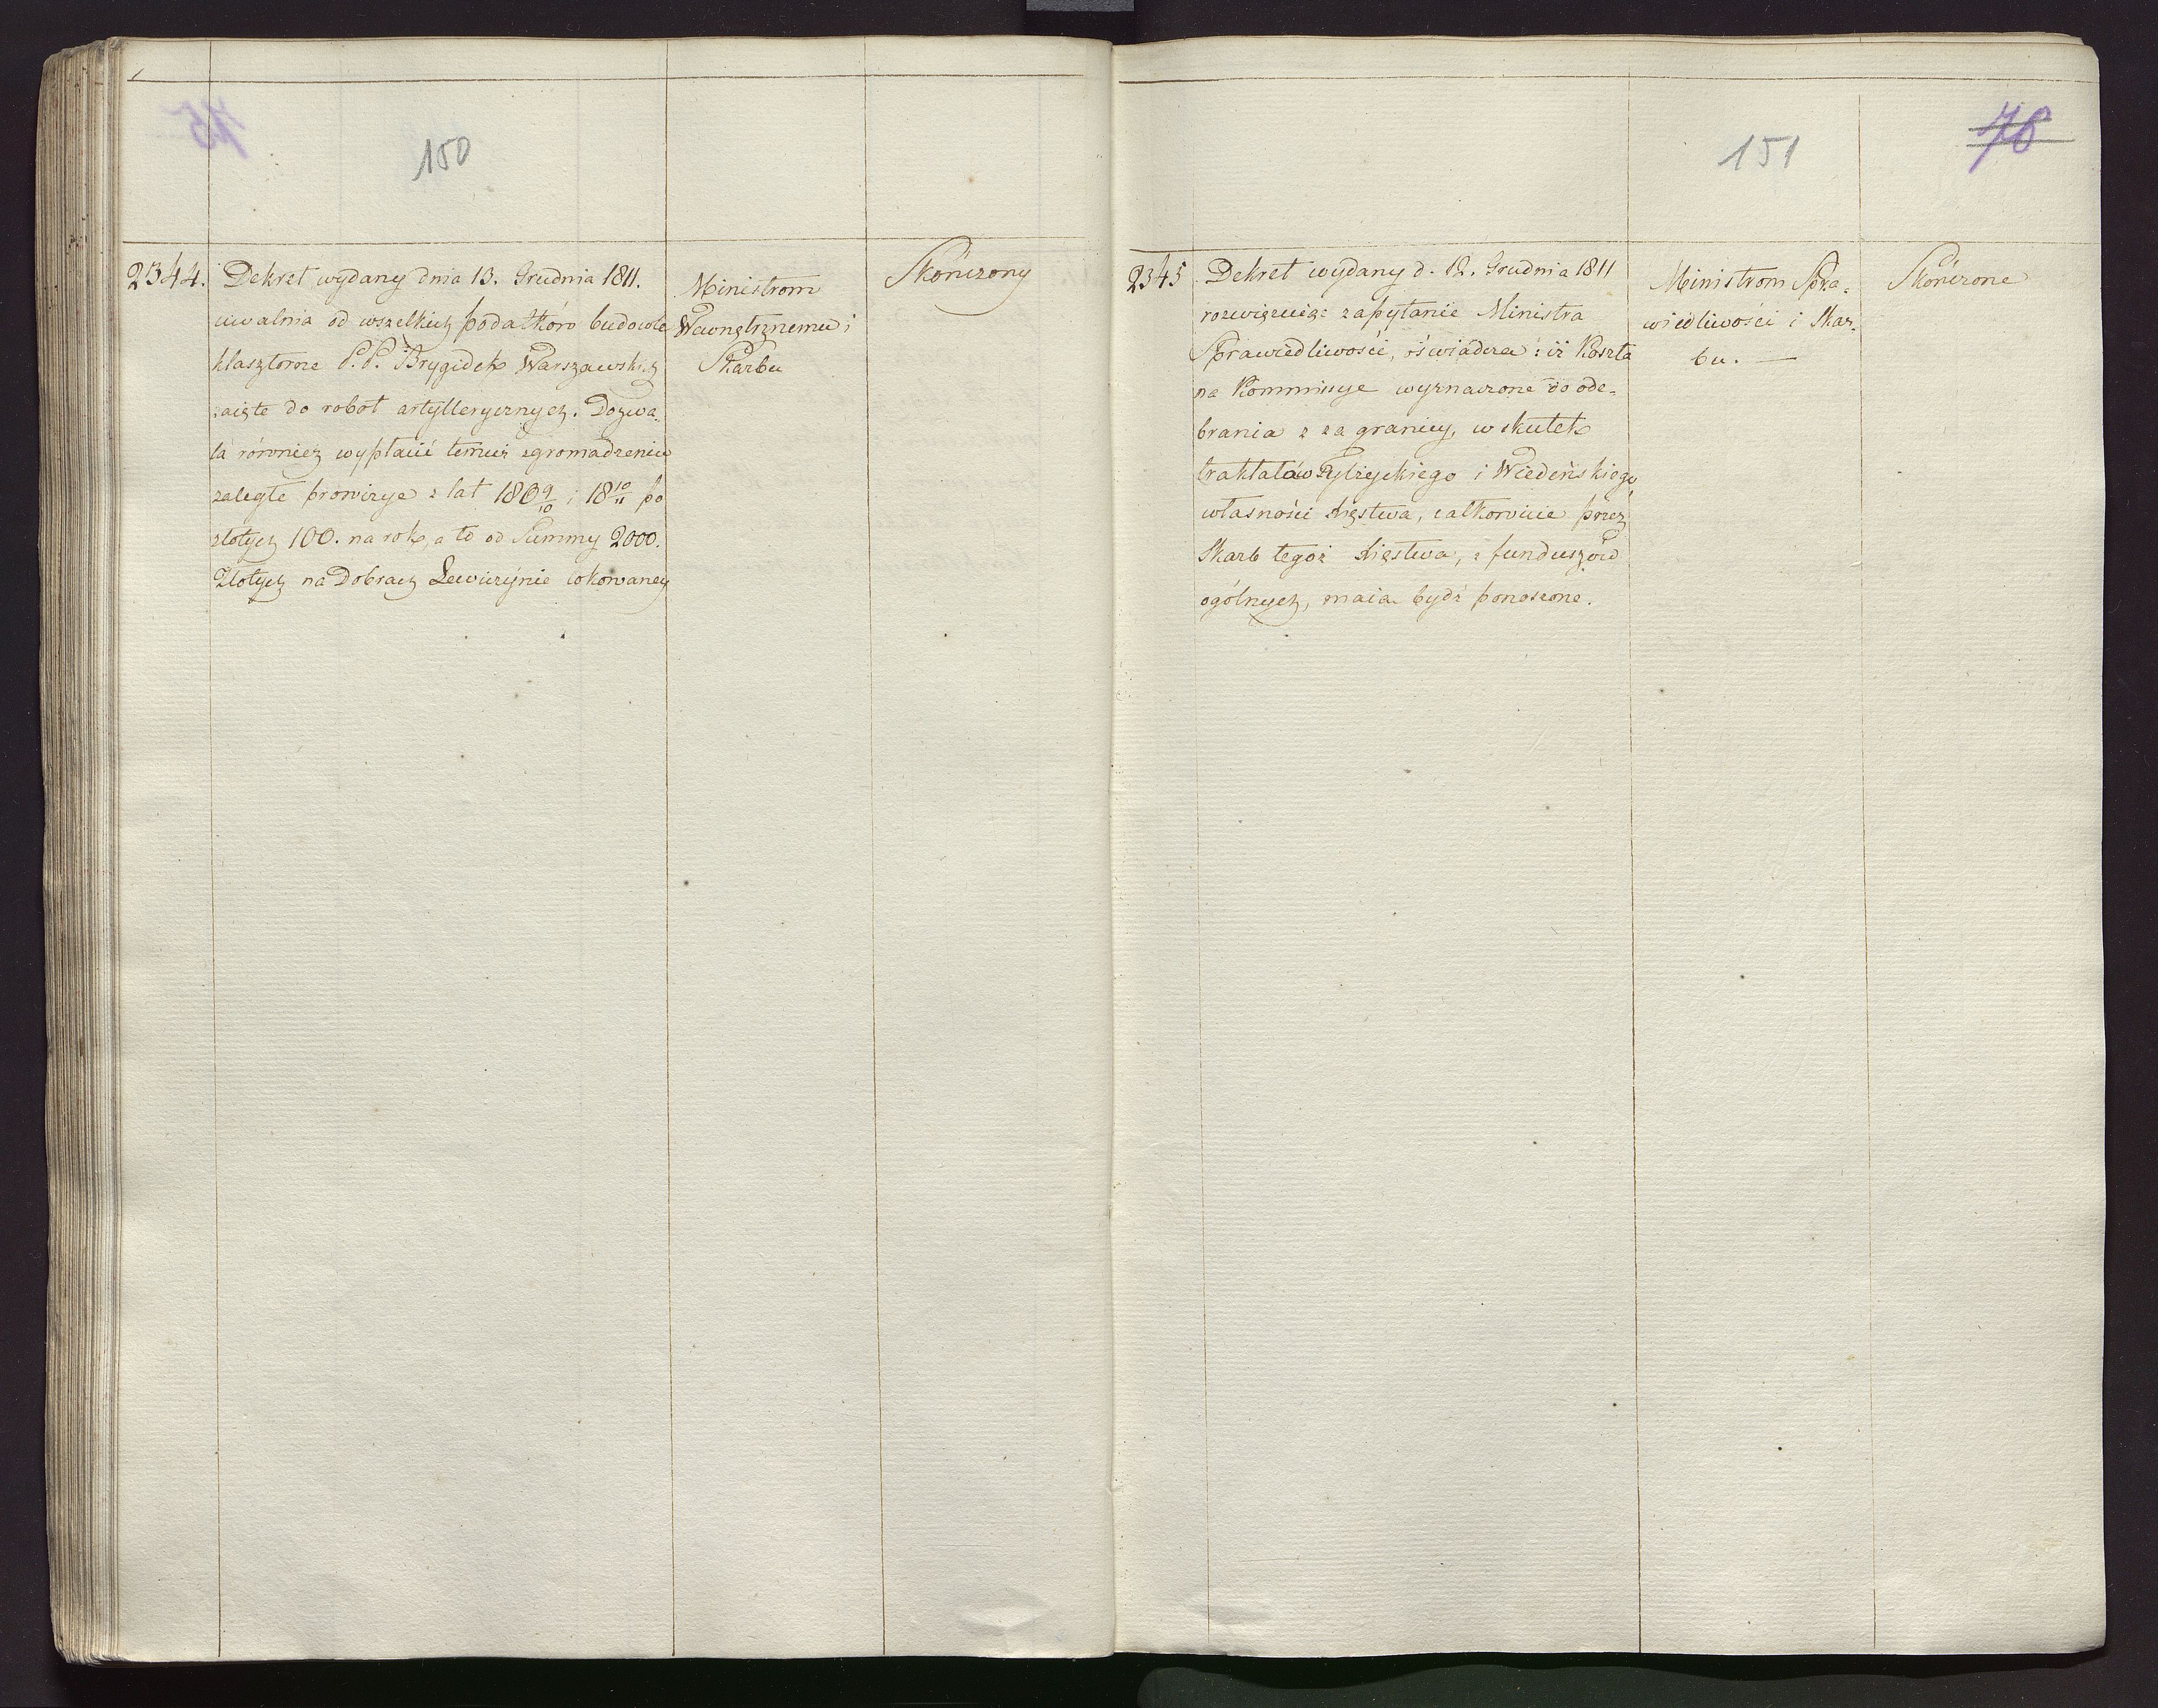 150
2344. Dekret wydany dnia 13. Grudnia 1811.
uwalnia od wszelkich podatków budowle
klasztorne P.P. Brygidek Warszawskich
zaięte do robot artylerycznych. Dozwa-
la również wypłacić temuż zgromadzeniu
zaległe prowizye z lat 1809/10 i 1810/11 po
złotych 100. na rok, a to od Summy 2000.
Złotych na Dobrach Lewiczynie lokowaney
Ministrom
Wewnętrznemu i
Skarbu
Skończony
151
76
2345 Dekret wydany d. 12. Grudnia 1811
rozwięzuiąc zapytanie Ministra
Sprawiedliwości, oświadcza: iż Koszta
na Kommissye wyznaczone do ode-
brania z za granicy, w skutek
traktatów Tylżyckiego i Wiedeńskiego,
własności Xięstwa, całkowicie przez
Skarb tegoż Xięstwa, z funduszów
ogólnych, maią bydź ponoszone.
Ministrom Spra-
wiedliwości i Skar-
bu. —
Skończone